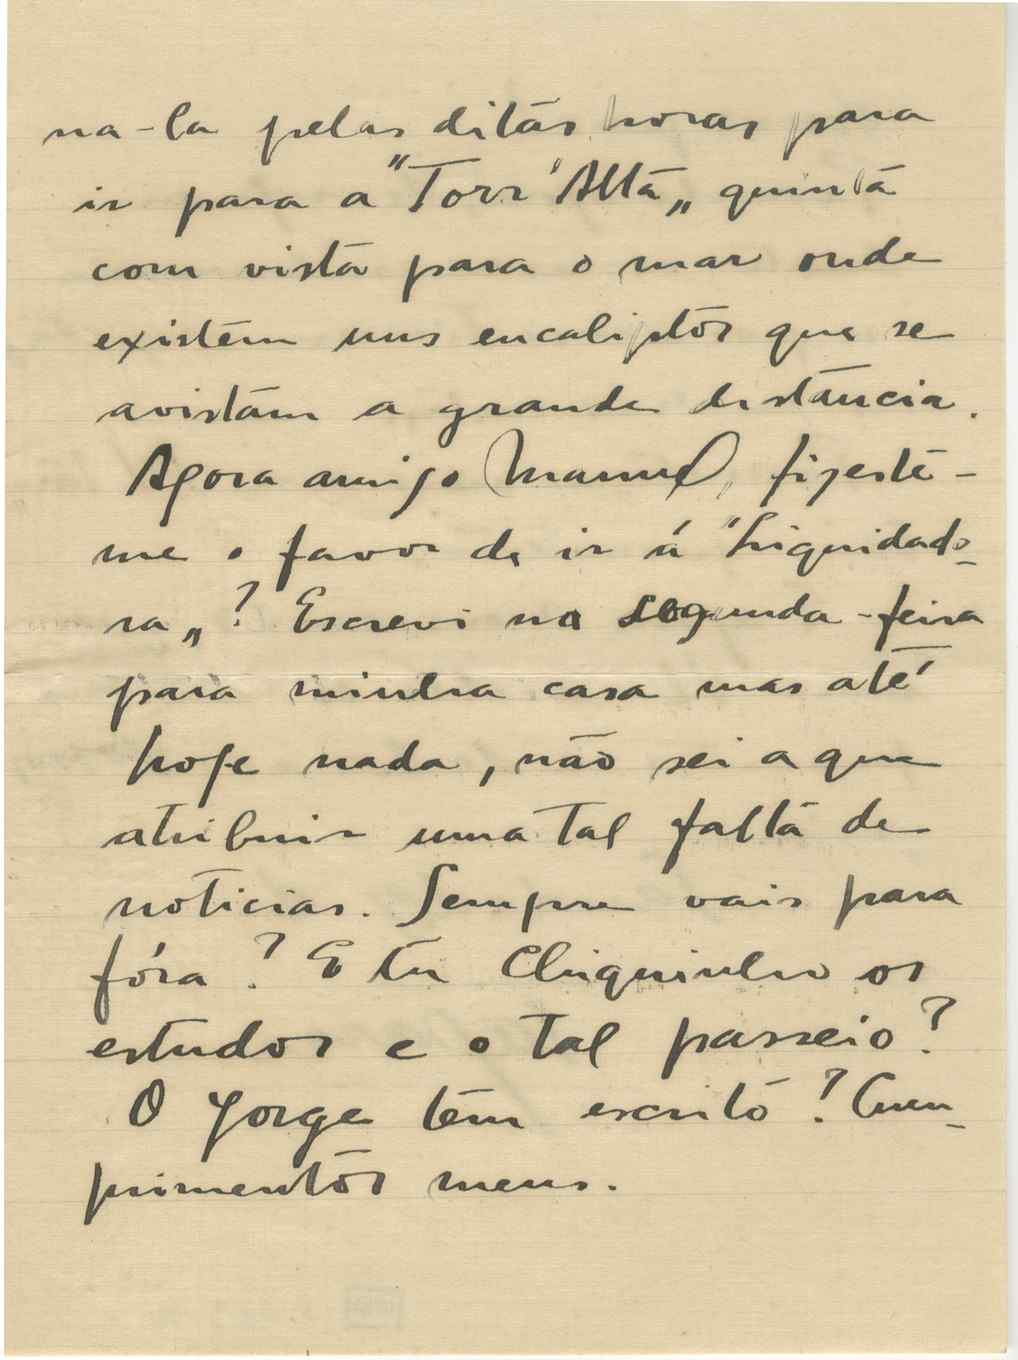 na-la pelas ditas horas para
ir para a "Torr'Alta„ quinta
com vista para o mar onde
existem uns eucaliptos que se
avistam a grande distancia.
Agora amigo Manuel, fizeste-
me o favor de ir á "Liquidado-
ra„? Escrevi na segunda-feira
para minha casa mas até
hoje nada, não sei a que
atribuir uma tal falta de
noticias. Sempre vais para
fóra? E tu Chiquinho os
estudos e o tal passeio?
O Jorge tem escrito? Cum-
primentos meus.